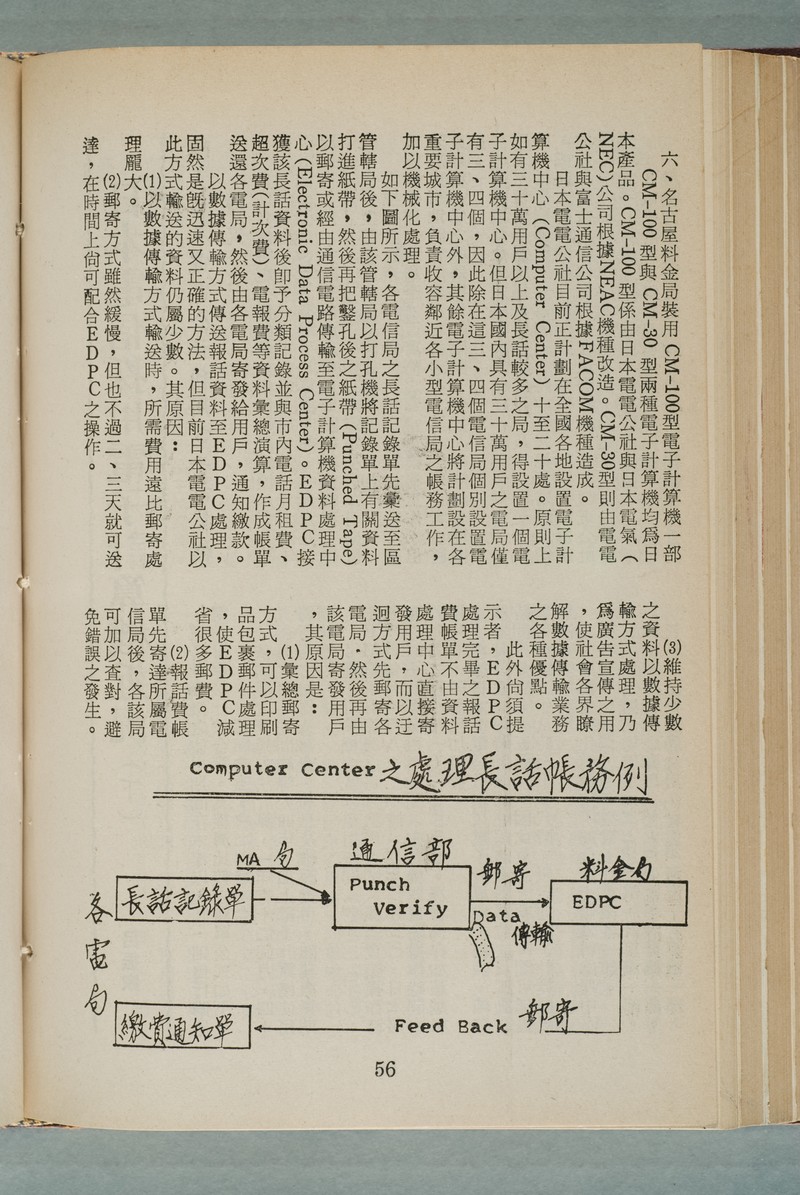 六、名古屋料金局裝用 CM-100型電子計算機一部
CM-100 型與 CM-30 型兩種電子計算機均爲日
本產品。CM-100 型係由日本電電公社與日本電氣（
NEC)公司根據NEAC機種改造。CM-30型則由電電
公社與富士通信公司根據FACOM機種造成。
日本電電公社目前正計劃在全國各地設置電子計
算機中心 (Computer Center) 十至二十處。原則上
如有三十萬用戶以上及長話較多之局，得設置一個電
子計算機中心。但日本國內具有三十萬用戶之電局僅
有三、四個，因此除在這三、四個電信局個別設置電
子計算機中心外，其餘電子計算機中心將計劃設在各
重要城市，負責收容鄰近各小型電信局之帳務工作，
加以機械化處理。
如下圖所示，各電信局之長話記錄單先彙送至區
管轄局後，由該管轄局以打孔機將記錄單上有關資料
打進紙帶，然後再把鑿孔後之紙帶 (Punched Tape)
以郵寄或經由通信電路傳輸至電子計算機資料處理中
心 (Electronic Data Process Center)。EDPC接
獲該長話資料後卽予分類記錄並與市內電話月租費、
超次費(計次費)、電報費等資料彙總演算，作成帳單
送還各電局，然後由各電局寄發給用戶，通知繳款。
以數據傳輸方式傳送報話資料至EDPC處理，
固然是旣迅速又正確的方法，但目前日本電電公社以
此方式輸送的資料仍屬少數。其原因：
(1)以數據傳輸方式輸送時，所需費用遠比郵寄處
理龐大。
(2)郵寄方式雖然緩慢，但也不過二、三天就可送
達，在時間上尙可配合EDPC之操作。
(3)維持少數
之資料以數據傳
輸方式處理，乃
爲廣告宣傳之用
，使社會各界瞭
解數據傳輸業務
之各種優點。
此外尙須提
示者，EDPC
處理完畢之報話
費帳單不由資料
處理中心直接寄
發用戶，而以迂
迴方式先郵寄各
電局・然後再由
該電局寄發用戶
，其原因是：
(1)彙總郵寄
方式，可以印刷
品包裹郵件處理
，使EDPC減
省很多郵費。
(2)報話費帳
單先寄達所屬電
信局後，各該局
可加以查對，避
免錯誤之發生。
Computer Center之處理長話帳務例
各電局
長話記錄單
MA 局
通信部
Punch
Verify
郵寄
Data
傳輸
料金局
EDPC
郵寄
Feed Back
繳費通知單
56